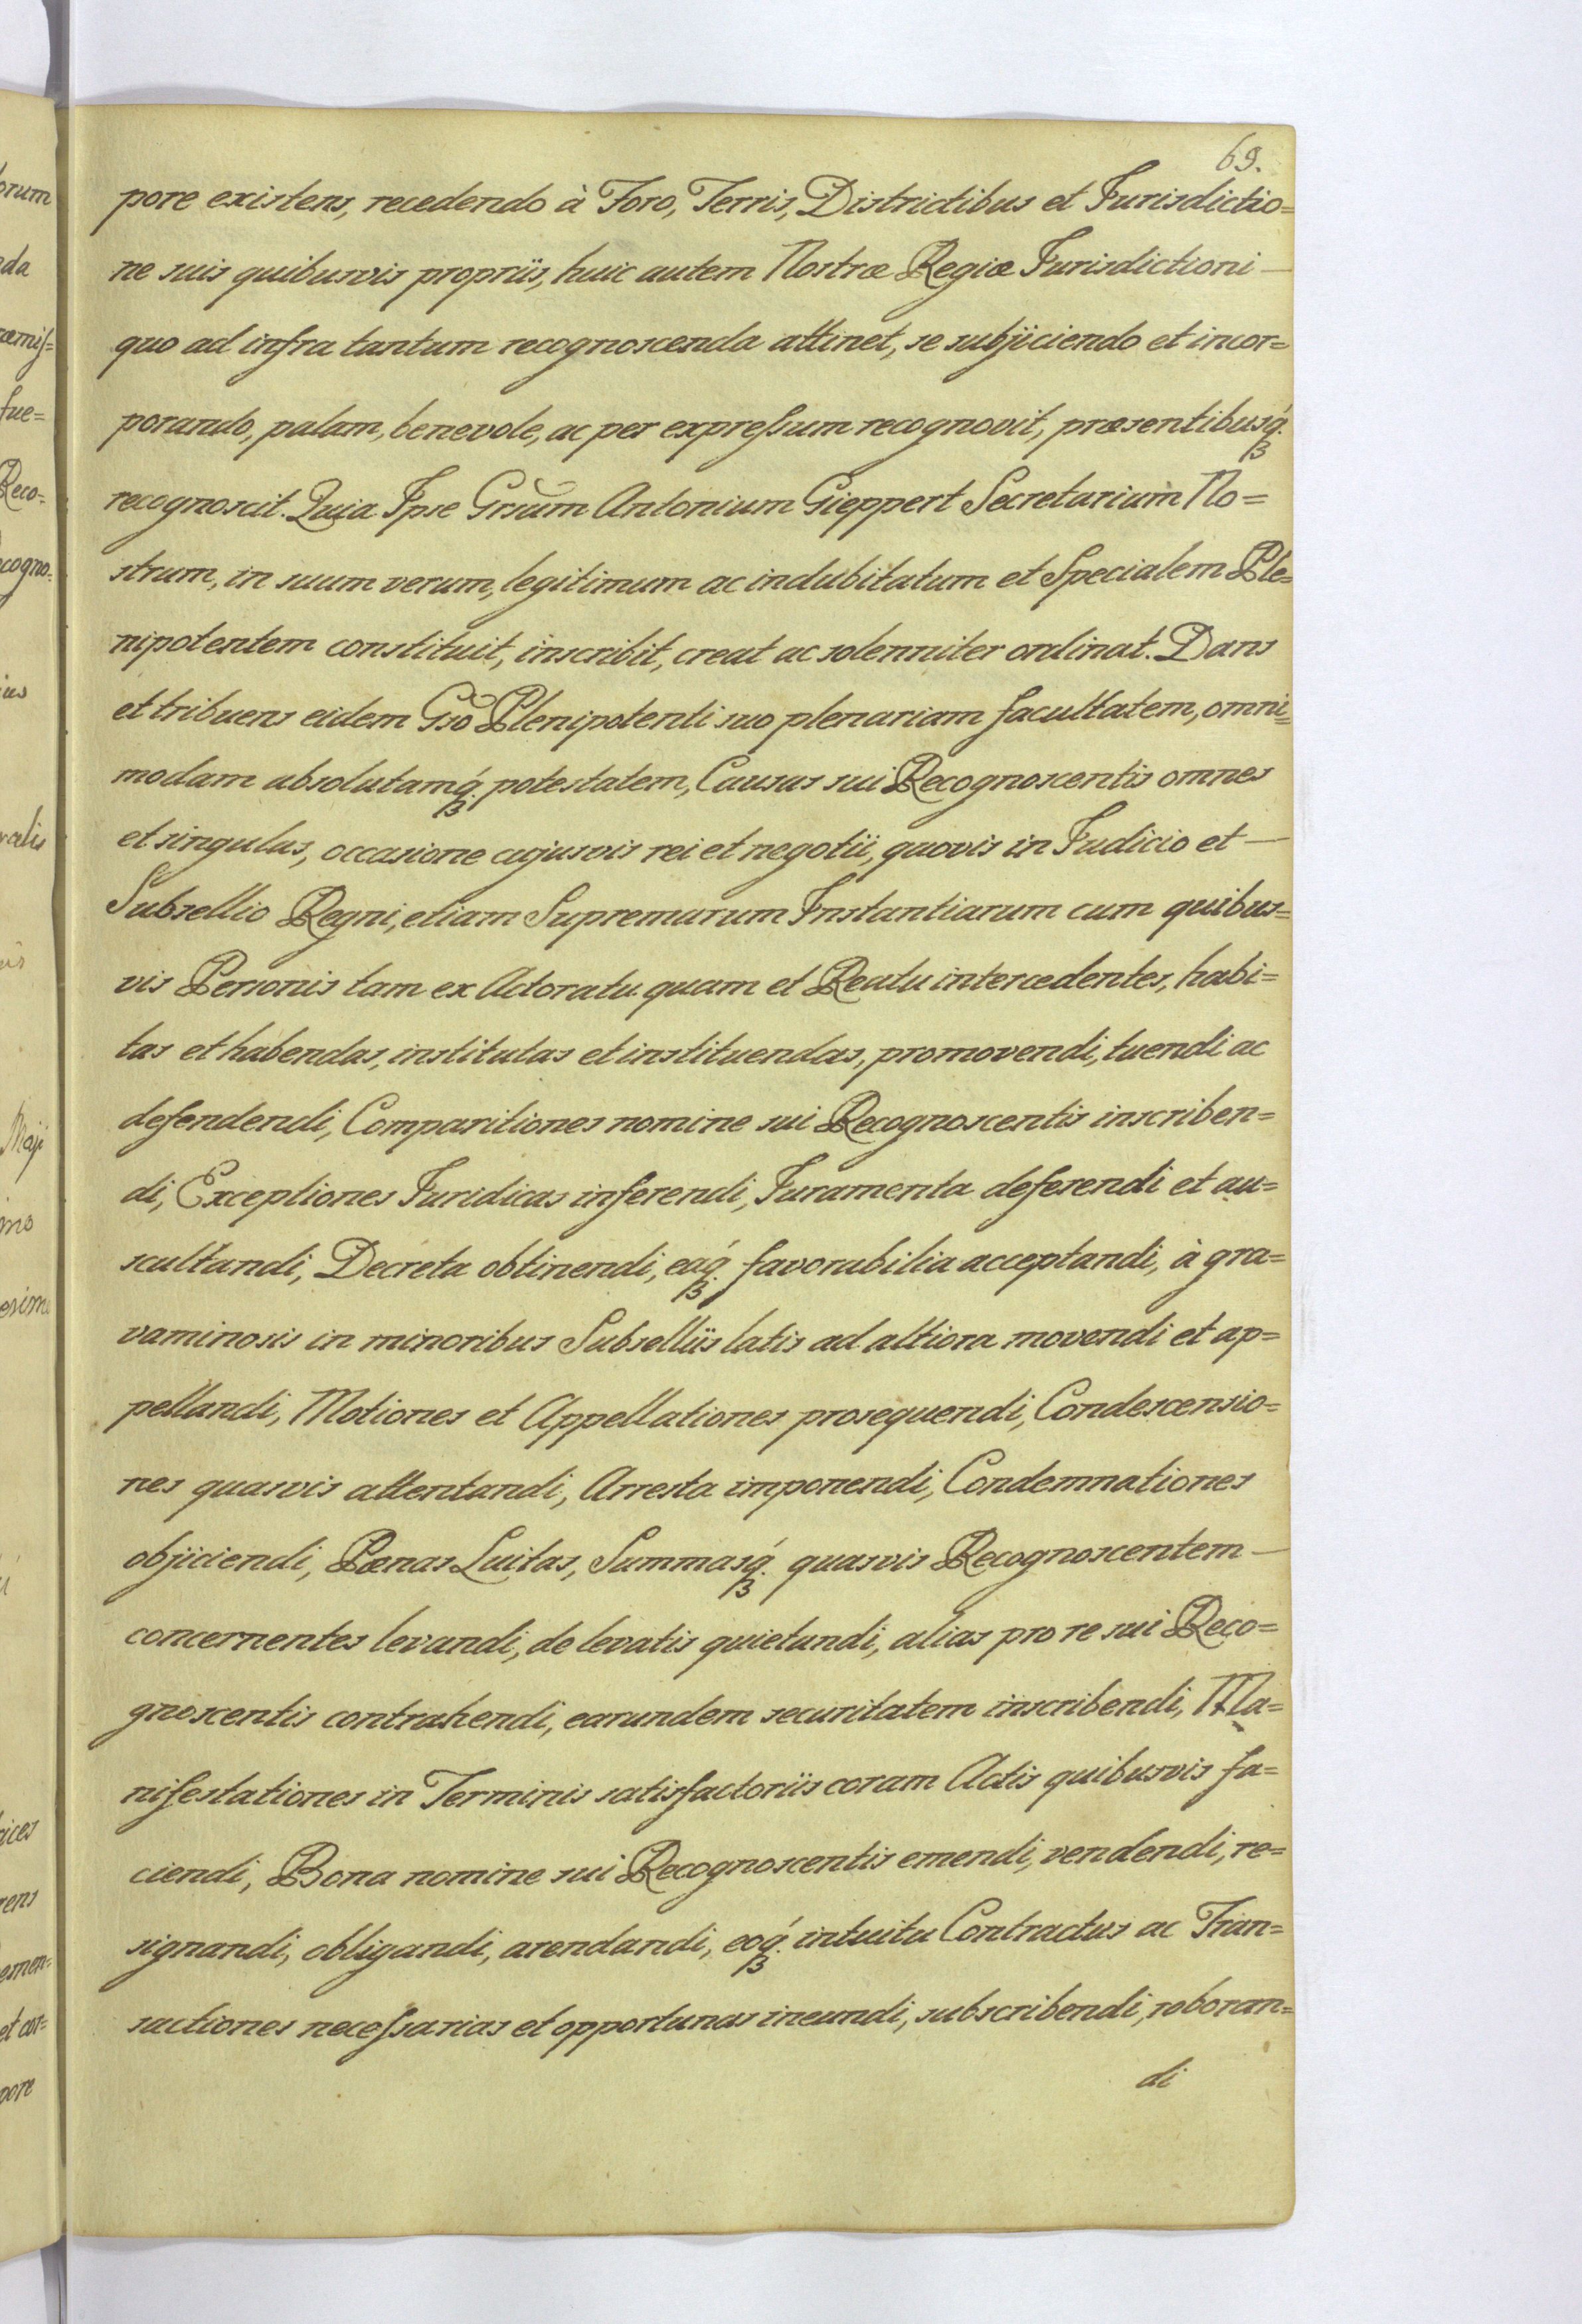 69.
pore existens, recedendo à Foro, Terris, Districtibus et Jurisdictio=
ne suis quibusvis propriis, huic autem Nostræ Regiæ Jurisdictioni —
quo ad infra tantum recognoscenda attinet, se subjiciendo et incor=
porando, palam, benevole, ac per expreſsum recognovit, præsentibusq́ꝫ
recognoscit. Quia Ipse Grsum Antonium Gieppert Secretarium No=
strum, in suum verum, legitimum ac indubitatum et Specialem Ple=
nipotentem constituit, inscribit, creat ac solenniter ordinat. Dans
et tribuens eidem Gso Plenipotenti suo plenariam facultatem, omni=
modam absolutamq́ꝫ potestatem, Causas sui Recognoscentis omnes
et singulas, occasione cujusvis rei et negotii, quovis in Judicio et —
Subsellio Regni, etiam Supremarum Instantiarum cum quibus=
vis Personis tam ex Actoratu quam et Reatu intercedentes, habi=
tas et habendas, institutas et instituendas, promovendi, tuendi ac
defendendi, Comparitiones nomine sui Recognoscentis inscriben=
di, Exceptiones Juridicas inferendi, Juramenta deferendi et au=
scultandi, Decreta obtinendi, eaq́ꝫ favorabilia acceptandi, à gra=
vaminosis in minoribus Subselliis latis ad altiora movendi et ap=
pellandi, Motiones et Appellationes prosequendi, Condescensio=
nes quasvis attentandi, Arresta imponendi, Condemnationes
objiciendi, Pœnas Luitas, Summasq́ꝫ quasvis Recognoscentem —
concernentes levandi, de levatis quietandi, alias pro re sui Reco=
gnoscentis contrahendi, earundem securitatem inscribendi, Ma=
nifestationes in Terminis satisfactoriis coram Actis quibusvis fa=
ciendi, Bona nomine sui Recognoscentis emendi, vendendi, re=
signandi, obligandi, arendandi, eoq́ꝫ intuitu Contractus ac Tran=
sactiones neceſsarias et opportunas ineundi, subscribendi, roboran=
di